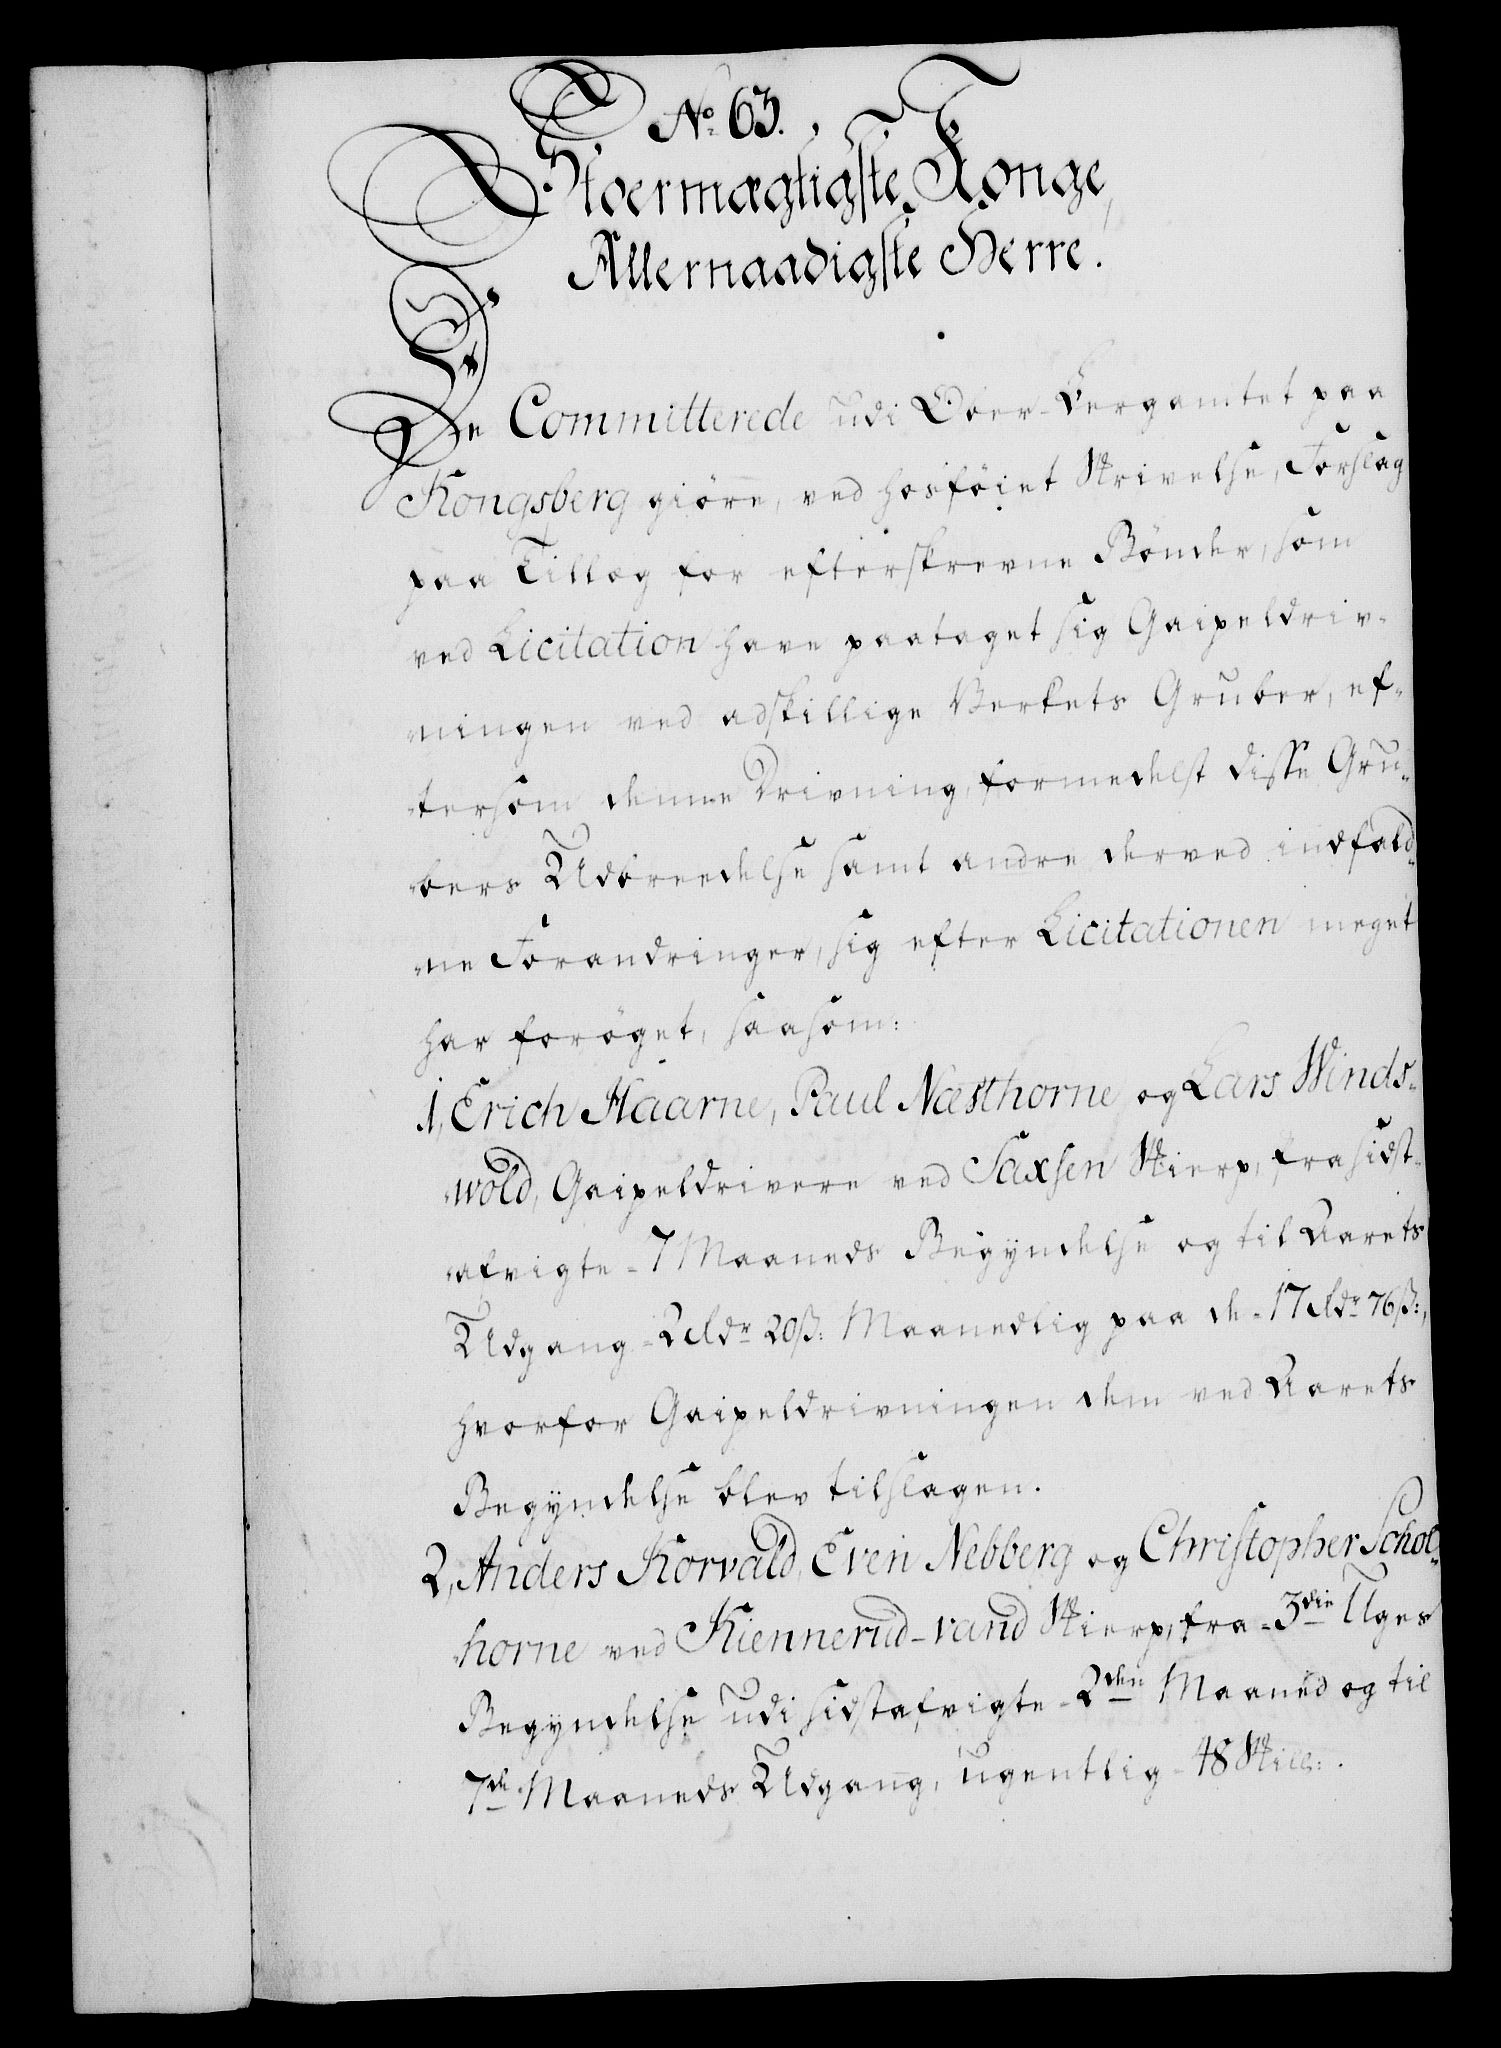 No. 63.
Stoermægtigste Konge,
Allernaadigste Herre.
De Committerede udi Ober-Bergamtet paa
Kongsberg giöre, ved hosföiet Skrivelse, Forslag
paa Tillæg for efterskrevne Bönder, som
ved Licitation have paataget sig Gaipeldriv-
ningen ved adskillige Verkets Gruber, ef-
tersom denne Drivning, formedelst disse Gru-
bers Udbreedelse samt andre derved indfald-
ne Forandringer, sig efter Licitationen meget
har foröget, saasom:
1, Erich Haarne, Paul Næsthorne og Lars Winds-
wold, Gaipeldrivere ved Saxsen Skierp, fra sidst-
afvigte 7 Maaneds Begyndelse og til Aarets
Udgang 2 Rdr 20 ß: Maanedlig paa de 17 Rdr 76 ß:,
hvorfor Gaipeldrivningen dem ved Aarets
Begyndelse blev tilslagen.
2, Anders Korvald, Even Nebberg og Christopher Schol-
horne ved Kiennerud-vand Skierp, fra 3die Uges
Begyndelse udi sidstafvigte 2den Maaned og til
7de Maaneds Udgang, ugentlig 48 Skill:.